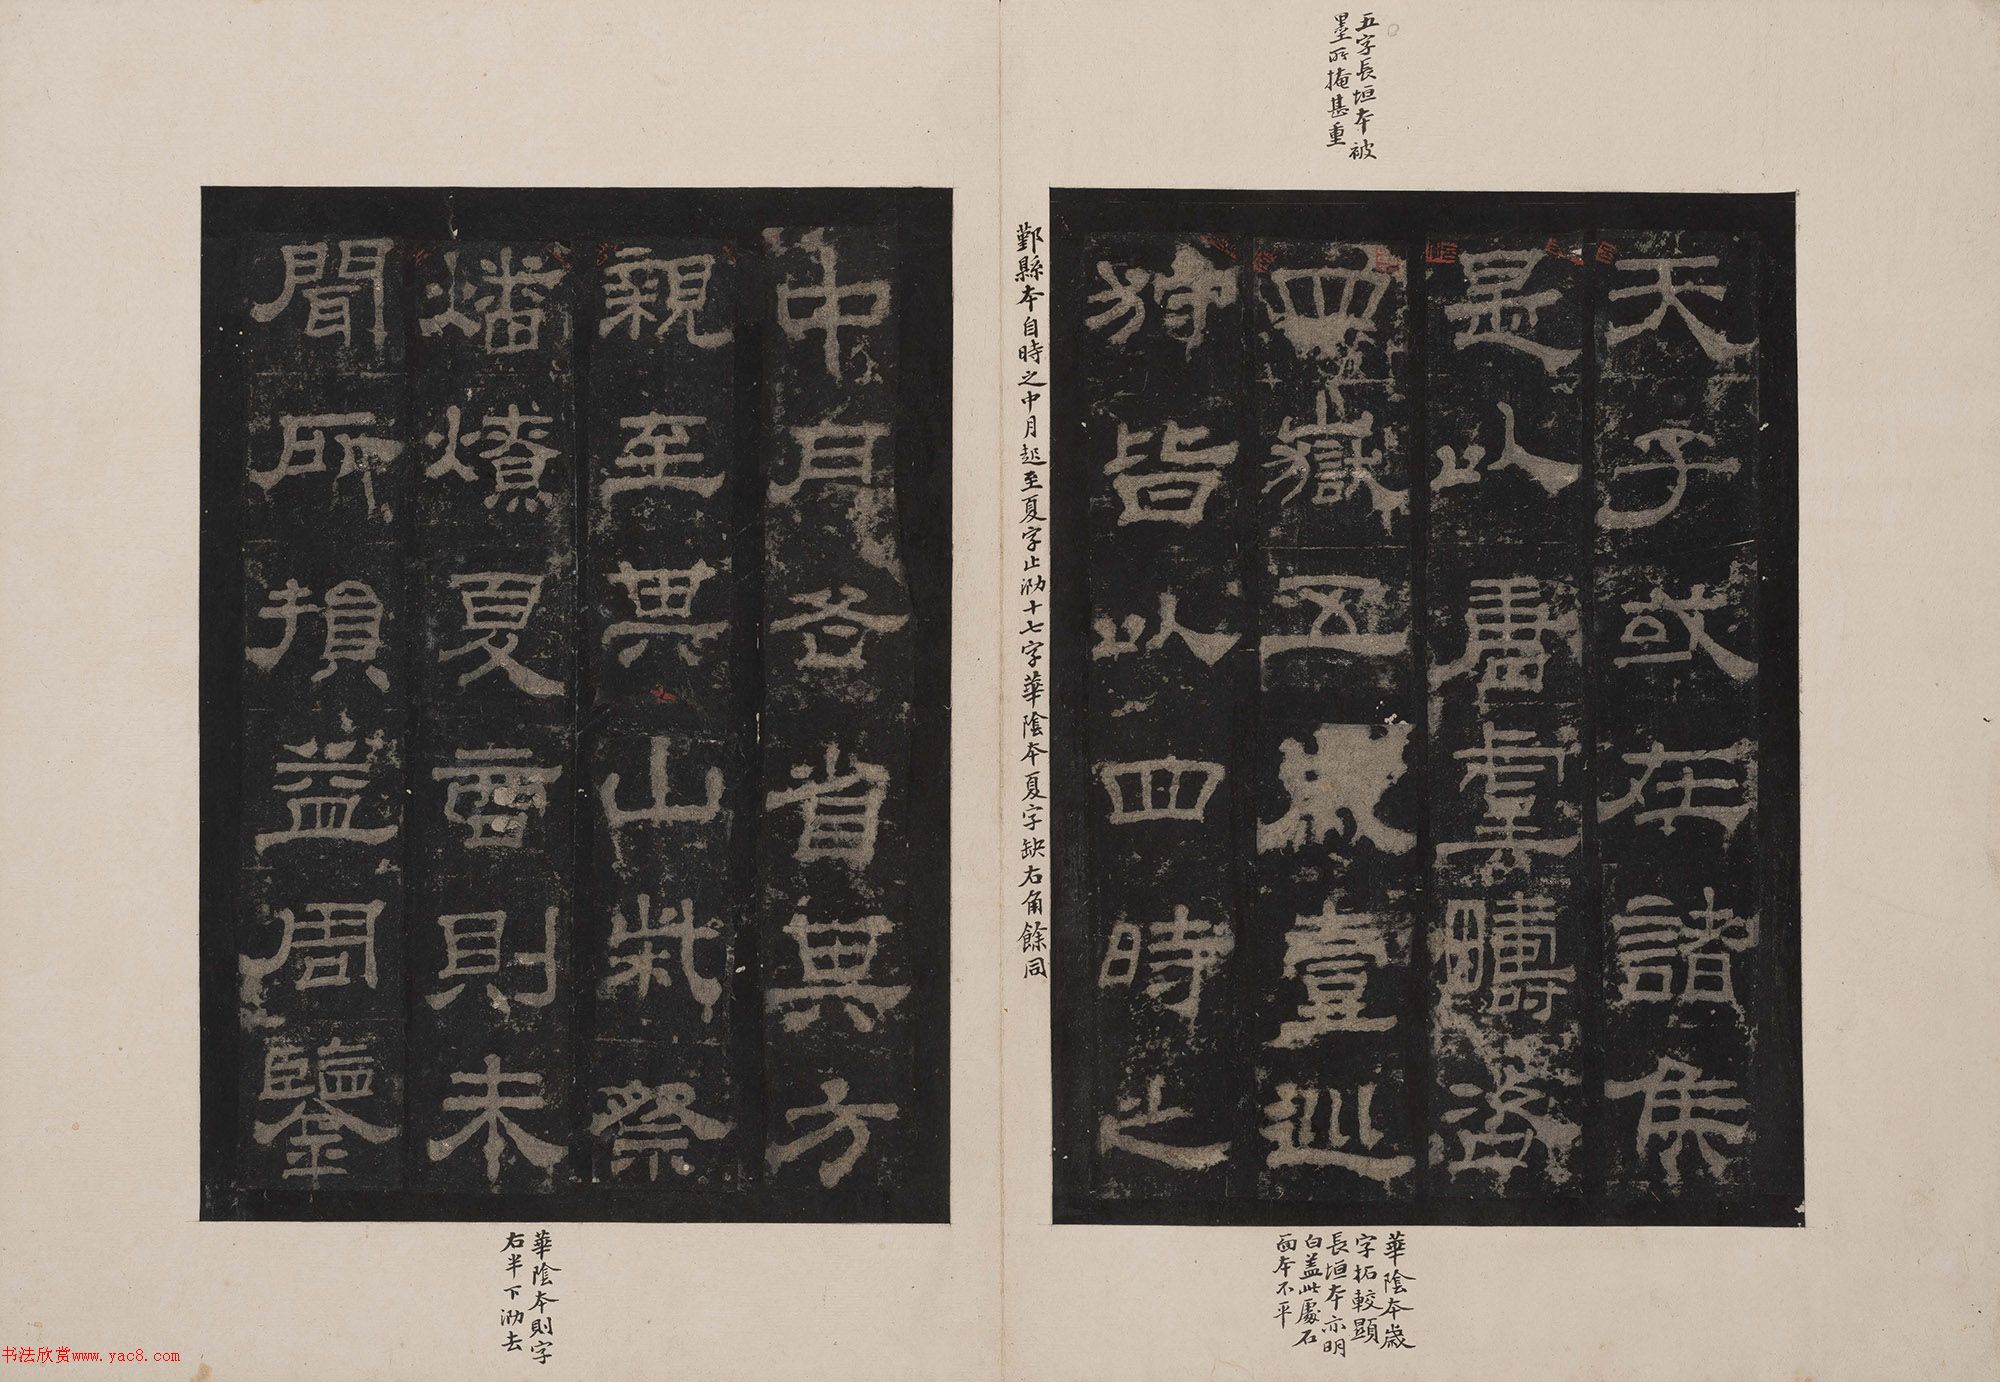 五字長垣本被
墨所掩甚重
天子或在諸侯
是以唐虞疇咨
四嶽五歲壹巡
狩皆以四時之
華陰本歲
字拓較顯
長垣本亦明
白盖此處石
面本不平
鄞縣本自時之中月起至夏字止泐十七字華陰本夏字缺右角餘同
中月各省其方
親至其山柴祭
燔燎夏商則未
聞所損益周鑒
華陰本則字
右半下泐去
书法欣赏www.yac8.com